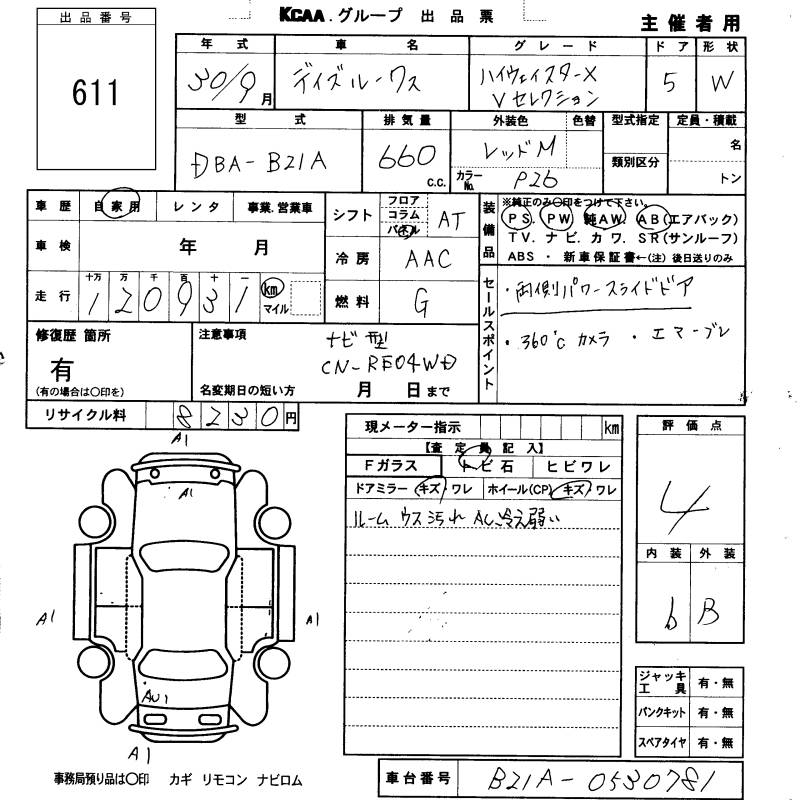 出品番号
611
KCAA.グループ 出品票
主催者用
年式 車名 グレード ドア 形状
30/9月 デイズルークス ハイウェイスターX Vセレクション 5 W
型式 排気量 外装色 色替 型式指定 定員・積載
DBA-B21A 660 c.c. レッドM 類別区分 名
カラーNo. P26 トン
車歴 自家用 レンタ 事業.営業車
車検 年 月
走行 十万 万 千 百 十 一
120931 km マイル
シフト フロア コラム パネル AT
冷房 AAC
燃料 G
装備品
※純正のみ〇印をつけて下さい。
PS. PW. 純AW. AB(エアバック)
TV. ナビ. カワ. SR(サンルーフ)
ABS ・ 新車保証書←(注) 後日送りのみ
セールスポイント
・両側パワースライドドア
・360℃カメラ ・エマーブレ
修復歴 箇所
有
(有の場合は〇印を)
注意事項
ナビ型
CN-RE04WD
名変期日の短い方 月 日まで
リサイクル料 8230円
現メーター指示 km
【査定員記入】
Fガラス トビ石 ヒビワレ
ドアミラー キズ・ワレ ホイール(CP) キズ・ワレ
ルーム ウス汚れ AC冷え弱い
評価点
4
内装 外装
b B
ジャッキ工具 有・無
パンクキット 有・無
スペアタイヤ 有・無
A1
A1
A1
A1
AU1
A1
事務局預り品は〇印 カギ リモコン ナビロム
車台番号 B21A-0530781